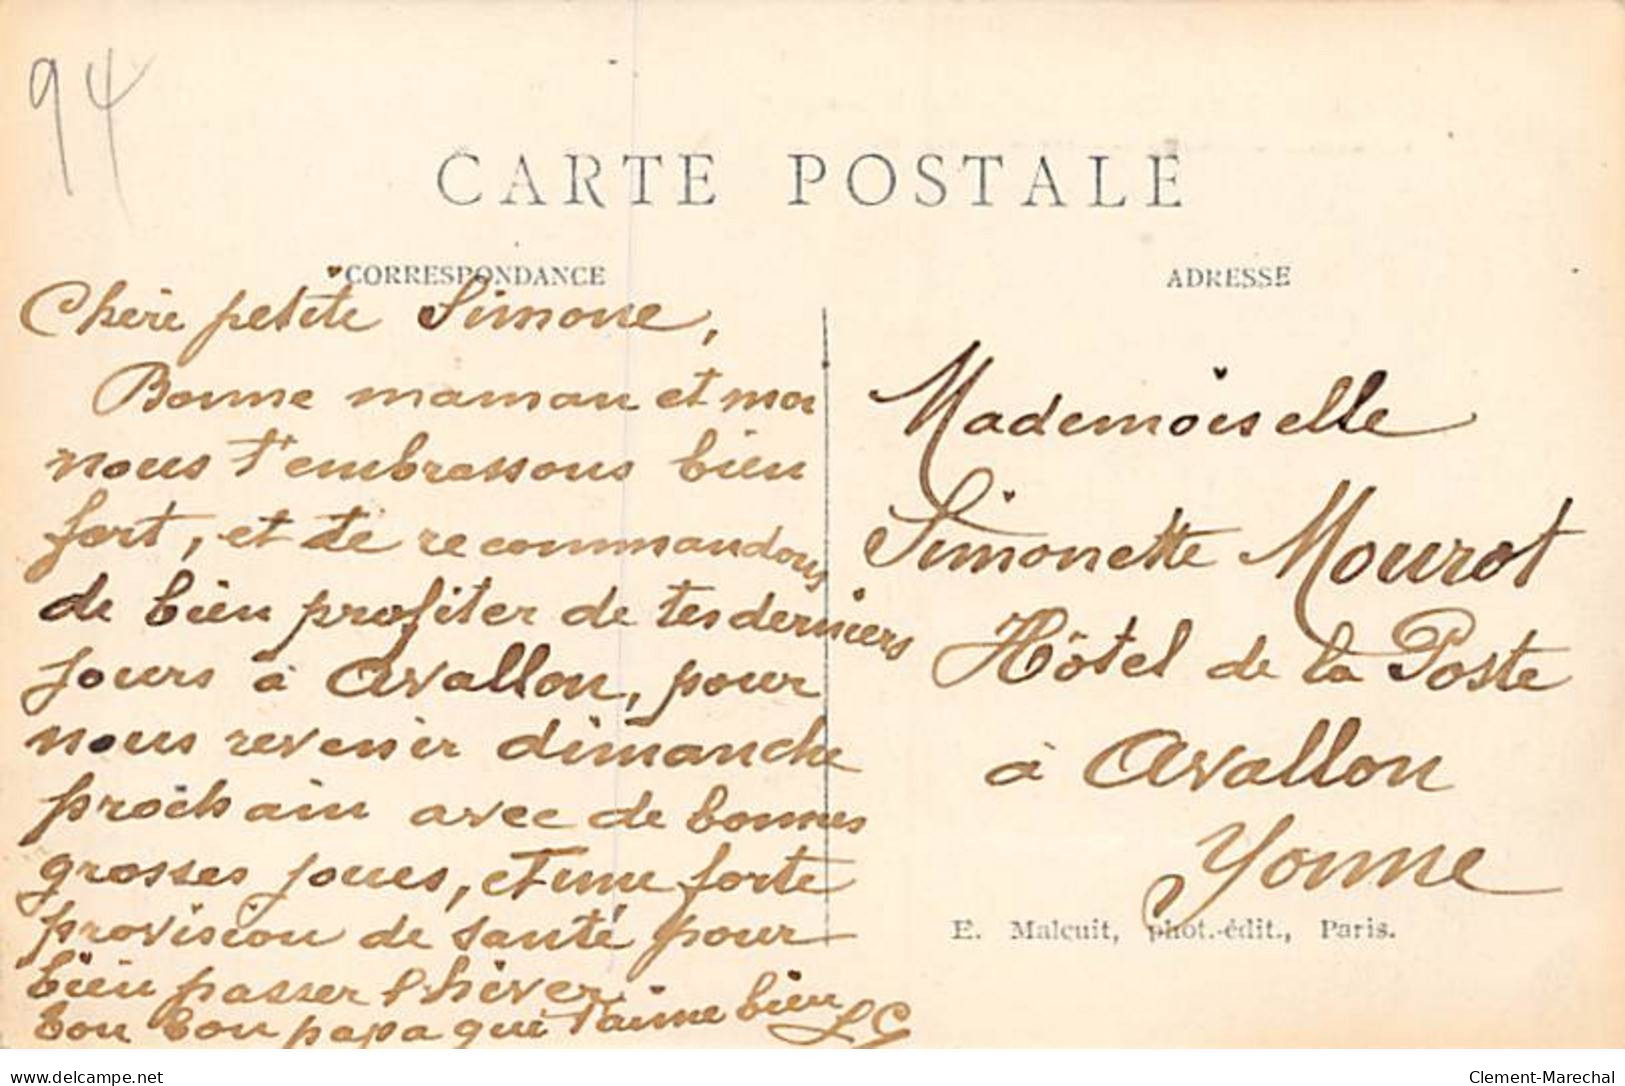 94
CARTE POSTALE
CORRESPONDANCE
Chère petite Simone,
Bonne maman et moi
nous t'embrassons bien
fort, et te recommandons
de bien profiter de tes derniers
jours à Avallon, pour
nous revenir dimanche
prochain avec de bonnes
grosses joues, et une forte
provision de santé pour
bien passer l'hiver.
ton bon papa qui t'aime bien
LC
ADRESSE
Mademoiselle
Simonette Mourot
Hôtel de la Poste
à Avallon
Yonne
E. Malcuit, phot.-édit., Paris.
delcampe.net
Clement-Marechal